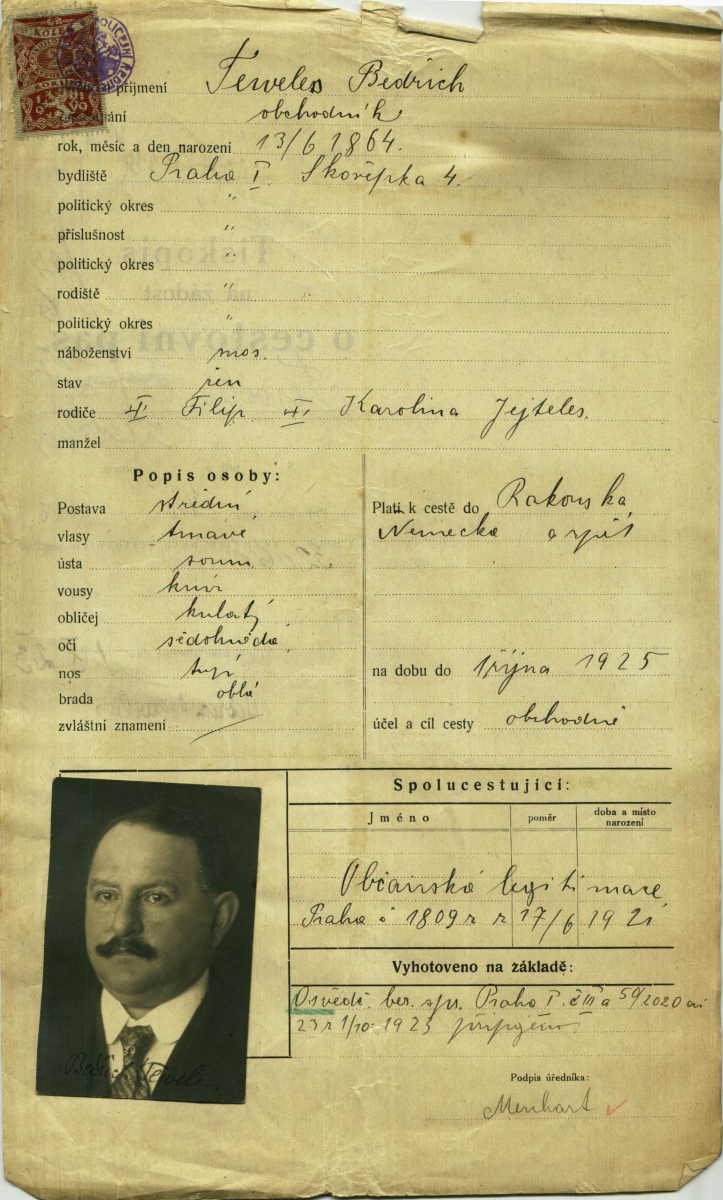 příjmení Teweles Bedřich
obchodník
rok, měsíc a den narození 13/6 1864.
bydliště Praha I. Skořepka 4.
politický okres "
příslušnost "
politický okres "
rodiště "
politický okres "
náboženství mos.
stav žen
rodiče Filip Karolina Jejteles.
manžel
Popis osoby:
Postava střední
vlasy tmavé
ústa soum.
vousy knír
obličej kulatý
oči šedohnědé
nos tupý
brada oblá
zvláštní znamení
Platí k cestě do Rakouska,
Německa a zpět
na dobu do 1 října 1925
účel a cíl cesty obchodně
Spolucestující:
Jméno poměr doba a místo narození
Občanská legitimace
Praha č 1809 z 17/6 1921
Vyhotoveno na základě:
Osvědč. ber. spr. Praha I. 
23 z 1/10 1923 připojeno
Podpis úředníka:
Menhart
Bedřich Teweles